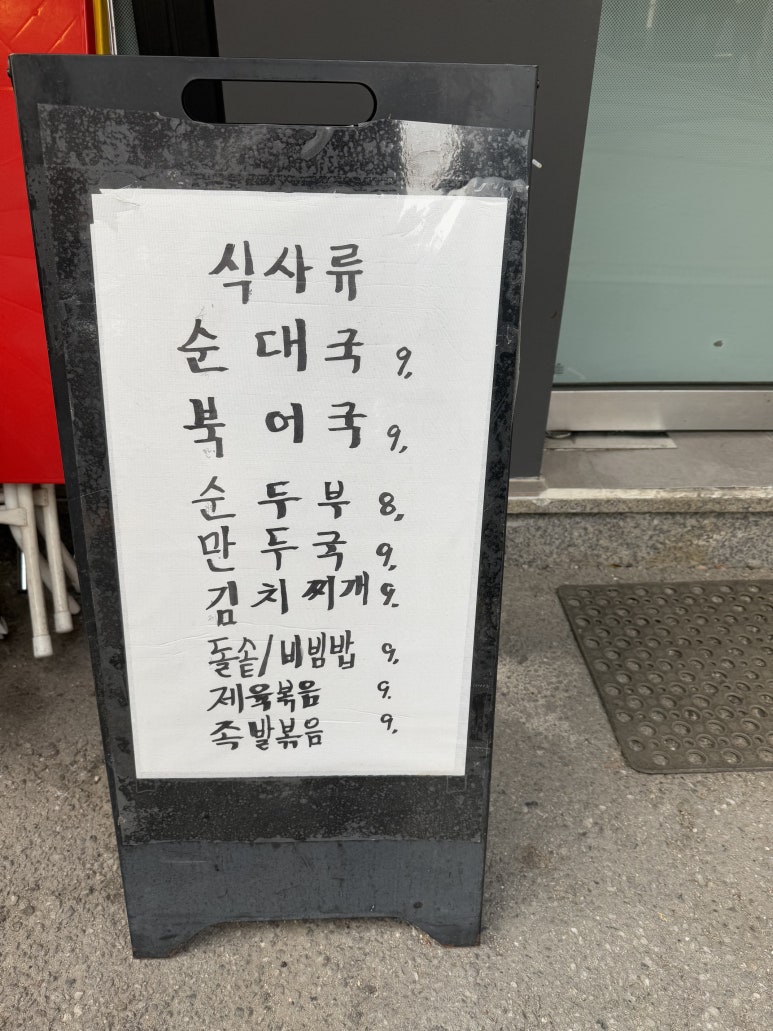 식사류
순대국 9,
북어국 9,
순두부 8,
만두국 9,
김치찌개 9.
돌솥/비빔밥 9,
제육볶음 9.
족발볶음 9,